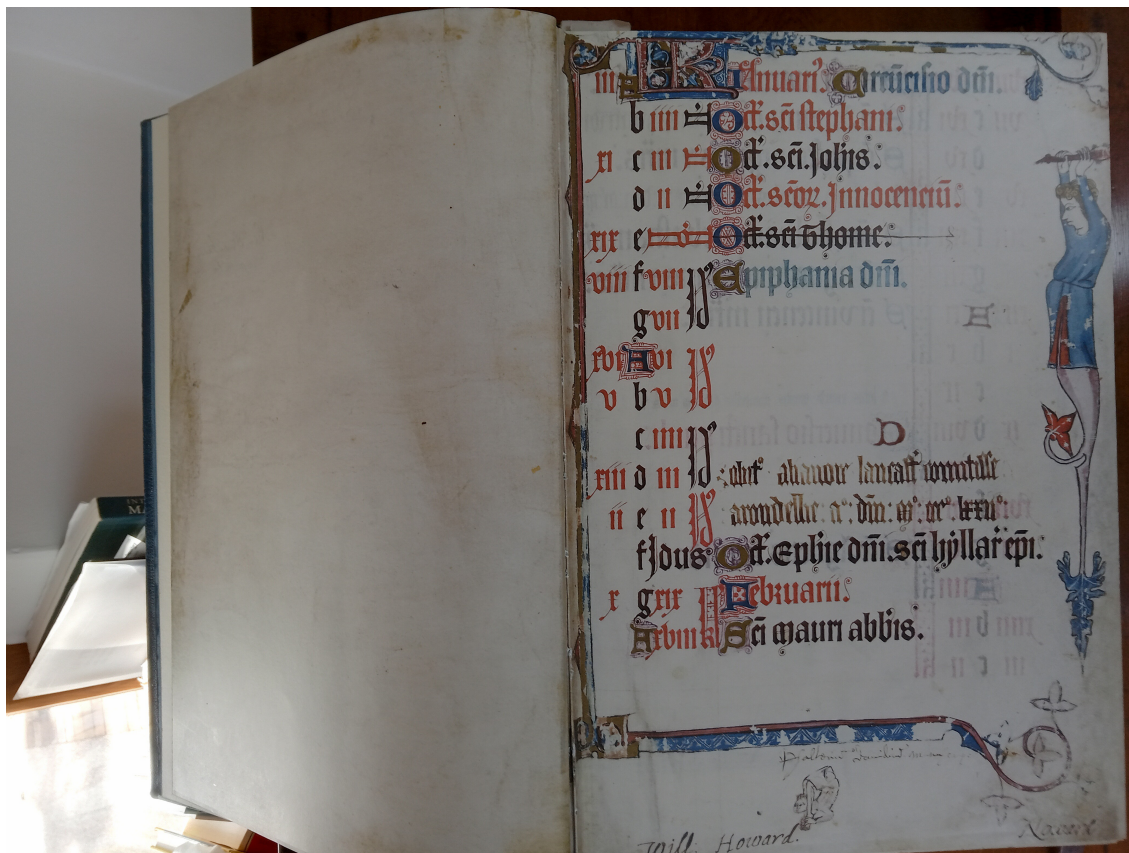 iii A KL Januarii. Circūcisio dm̄i.
b iiii N Oct̄. sc̄i stephani.
xi c iii N Oct̄. sc̄i. Joħis.
d ii N Oct̄. sc̄oꝝ. Innocenciū.
xix e N Oct̄. sc̄i thome.
viii f viii Id Epiphania dm̄i.
g vii Id
xvi A vi Id
v b v Id
c iiii Id D
xiii d iii Id obit lancast comitisse
ii e ii Id arondelle
f Idus Oct̄. Epħie dm̄i. sc̄i hyllarˀ ep̄i.
x g xix kl Februarii.
A xviii kl Sc̄i Mauri abb̄is.
Will. Howard.